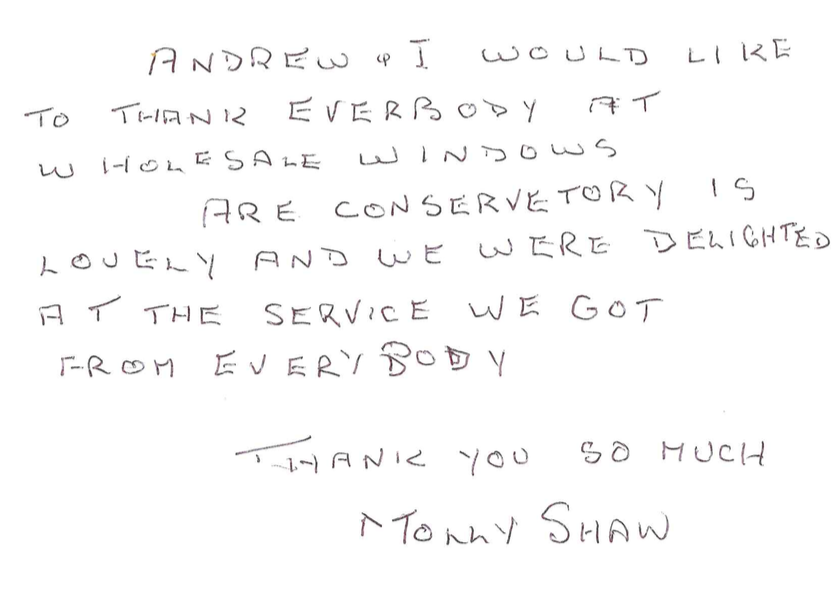 ANDREW & I WOULD LIKE
TO THANK EVERBODY AT
WHOLESALE WINDOWS
ARE CONSERVETORY IS
LOVELY AND WE WERE DELIGHTED
AT THE SERVICE WE GOT
FROM EVERYBODY
THANK YOU SO MUCH
SHAW